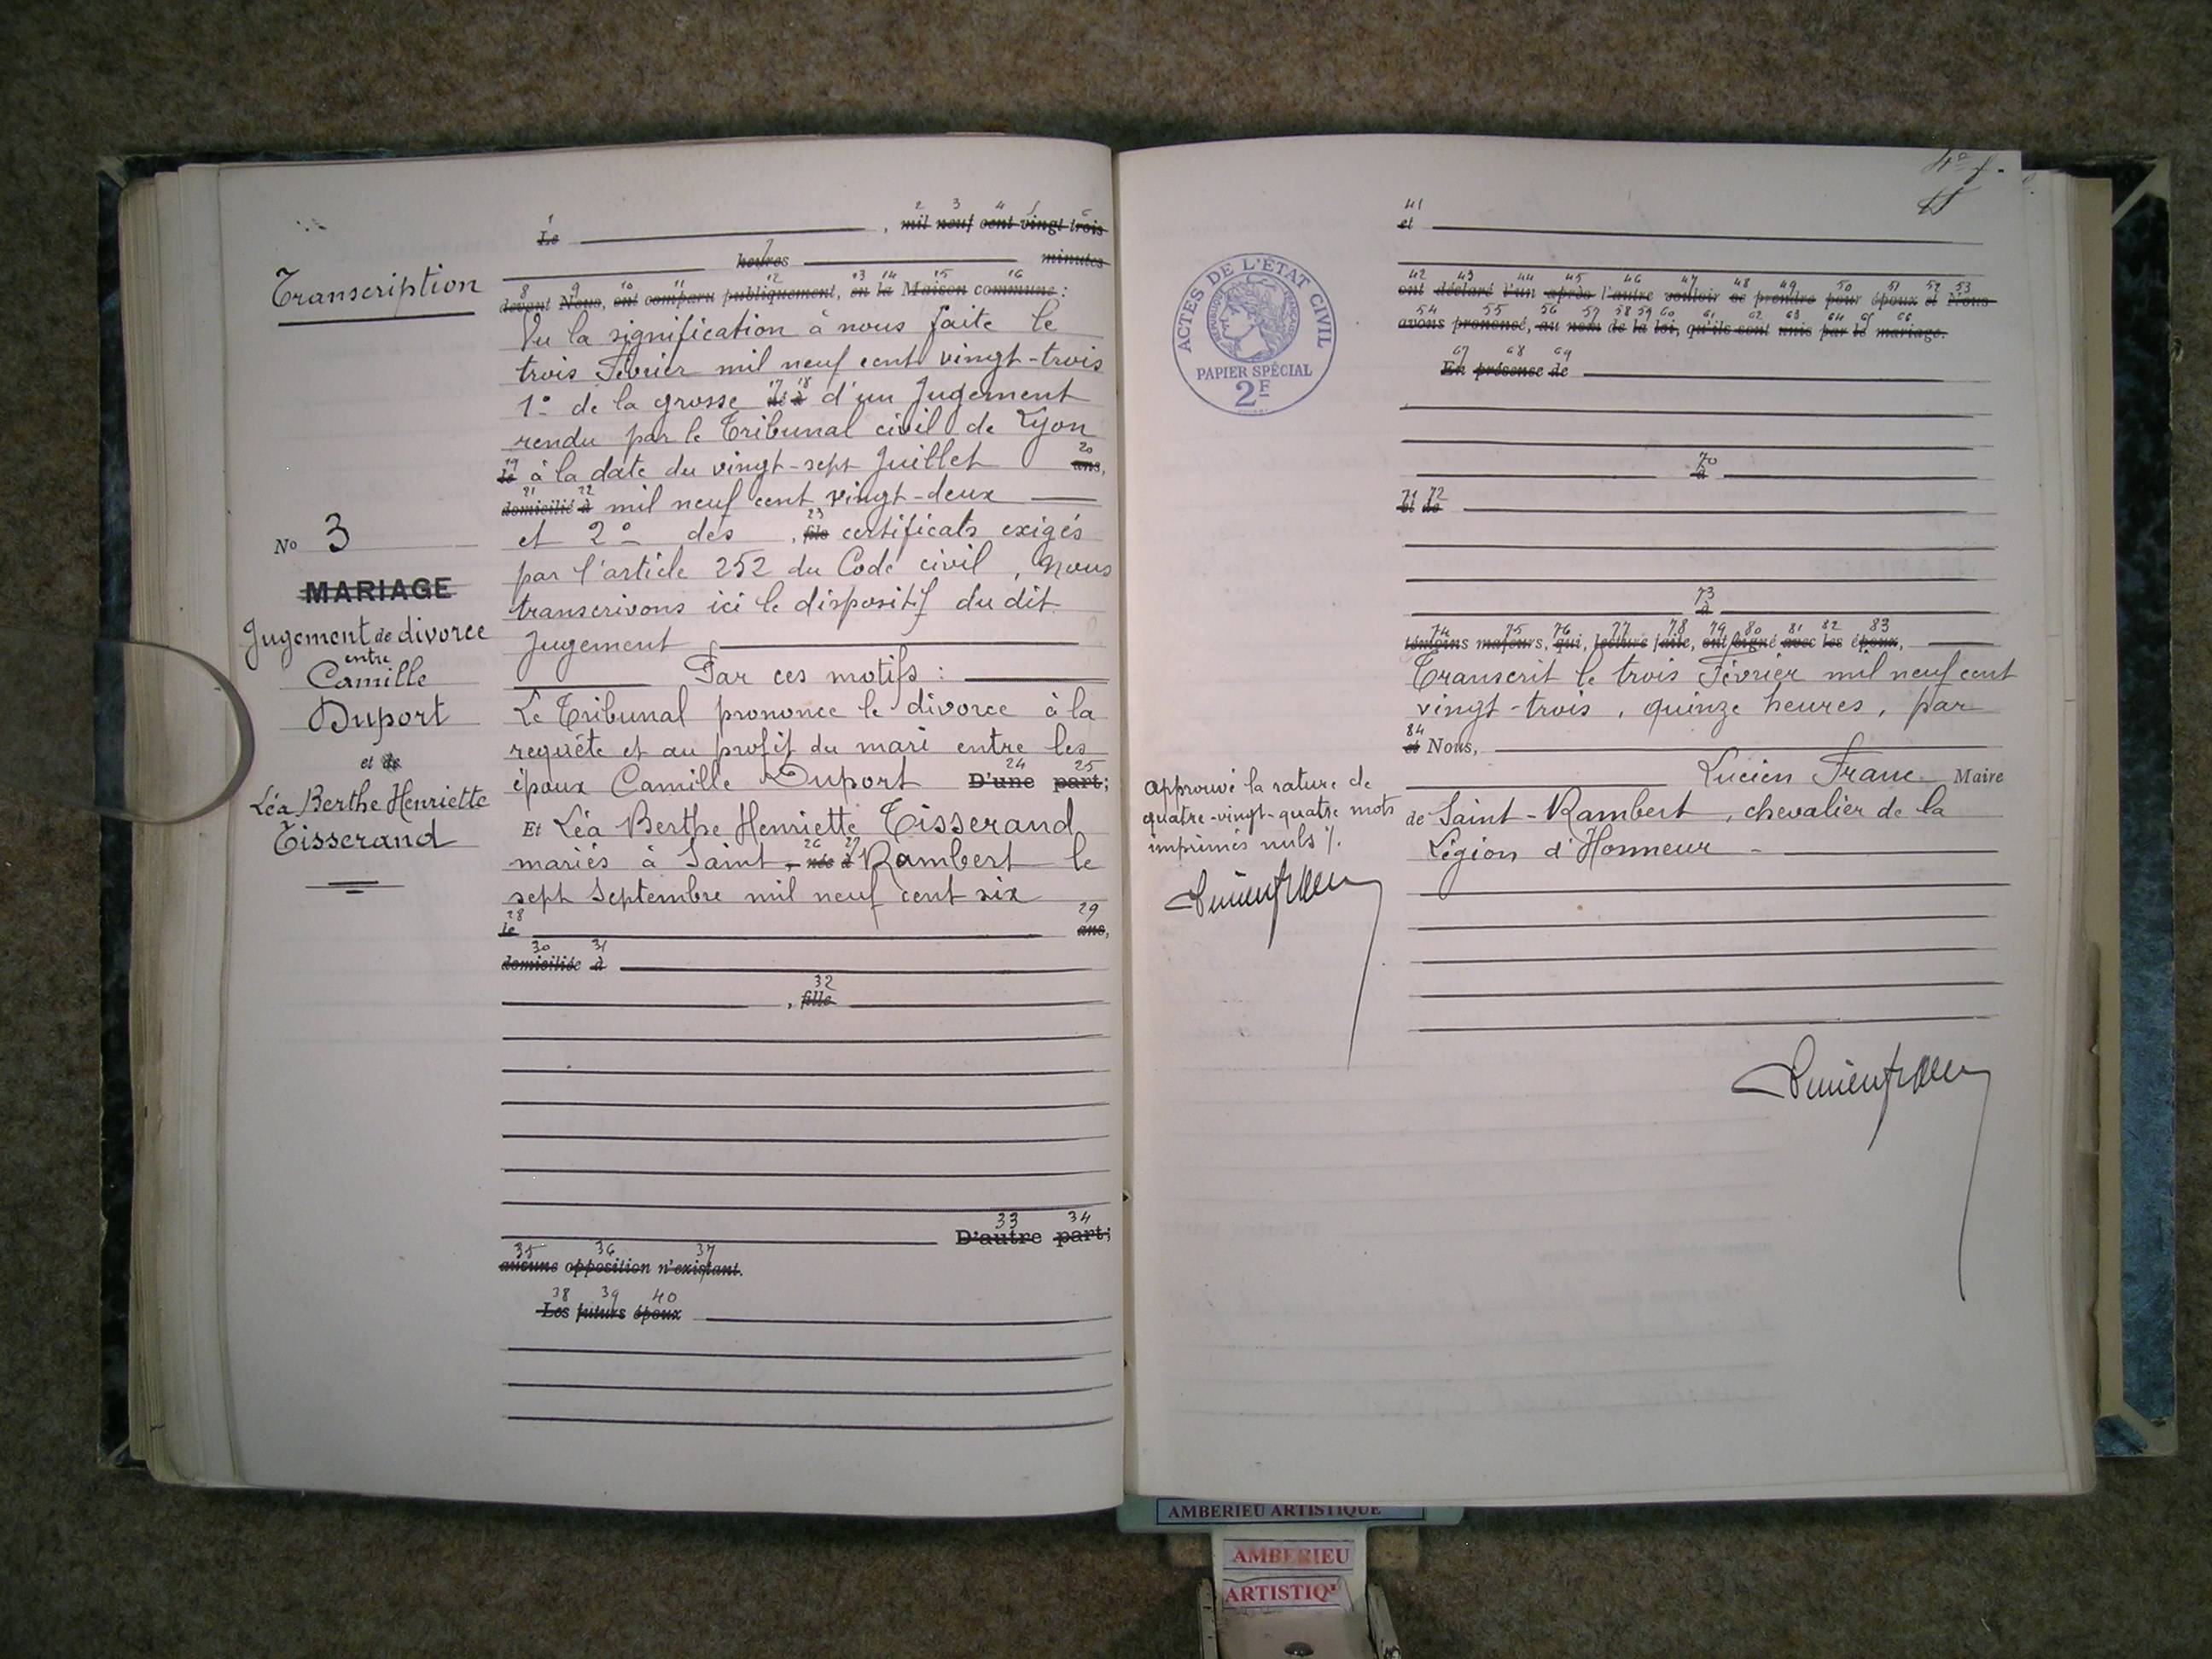 Transcription
No 3
MARIAGE
Jugement de divorce
entre
Camille
Duport
et de
Léa Berthe Henriette
Tisserand
1 2 3 4 5 6
Le , mil neuf cent vingt trois
7
heures minutes
8 9 10 11 12 13 14 15 16
devant Nous, ont comparu publiquement, en la Maison commune :
Vu la signification à nous faite le
trois Février mil neuf cent vingt-trois
17 18
1° de la grosse né à d'un Jugement
rendu par le Tribunal civil de Lyon
19 20
le à la date du vingt-sept Juillet ans,
21 22
domicilié à mil neuf cent vingt-deux
23
et 2° des , fils certificats exigés
par l'article 252 du Code civil, Nous
transcrivons ici le dispositif du dit
Jugement
Par ces motifs :
Le Tribunal prononce le divorce à la
requête et au profit du mari entre les
24 25
époux Camille Duport D'une part;
Et Léa Berthe Henriette Tisserand
26 27
mariés à Saint - née à Rambert le
sept Septembre mil neuf cent six
28 29
le ans,
30 31
domiciliée à
32
, fille
33 34
D'autre part;
35 36 37
aucune opposition n'existant.
38 39 40
Les futurs époux
ACTES DE L'ÉTAT CIVIL
RÉPUBLIQUE FRANÇAISE
PAPIER SPÉCIAL
2F
41
et
42 43 44 45 46 47 48 49 50 51 52 53
ont déclaré l'un après l'autre vouloir se prendre pour époux et Nous
54 55 56 57 58 59 60 61 62 63 64 65 66
avons prononcé, au nom de la loi, qu'ils sont unis par le mariage.
67 68 69
En présence de
70
à
71 72
et de
73
à
74 75 76 77 78 79 80 81 82 83
témoins majeurs, qui, lecture faite, ont signé avec les époux,
Transcrit le trois Février mil neuf cent
vingt-trois, quinze heures, par
84
et Nous,
Lucien Franc Maire
de Saint-Rambert, chevalier de la
Légion d'Honneur -
Approuvé la rature de
quatre-vingt-quatre mots
imprimés nuls %.
Lucien Franc
Lucien Franc
AMBERIEU ARTISTIQUE
AMBERIEU
ARTISTIQ